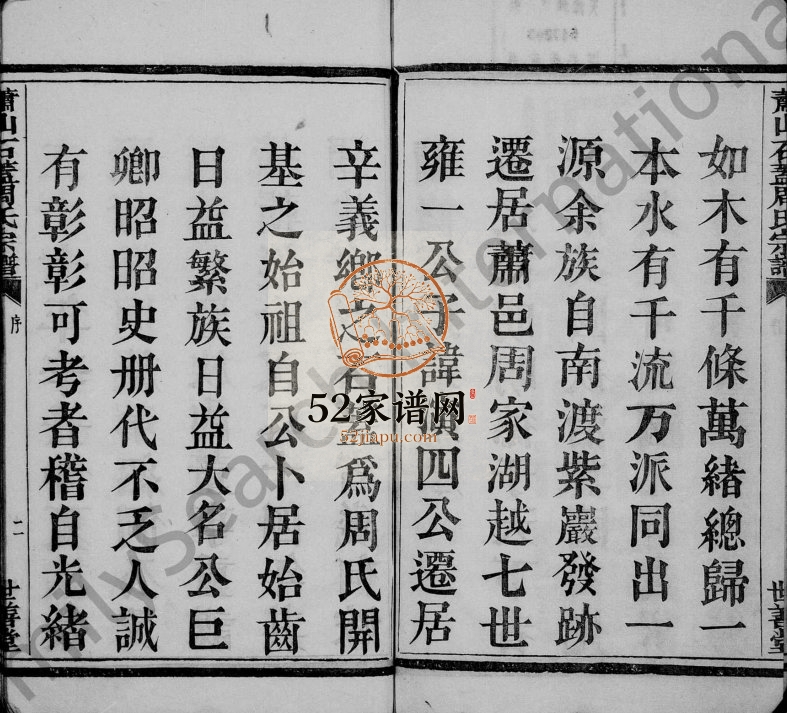 蕭山石蓋周氏宗譜
世善堂
如木有千條萬緒總歸一
本水有千流万派同出一
源余族自南渡紫巖發跡
遷居蕭邑周家湖越七世
雍一公子諱 四公遷居
辛義鄉之石蓋爲周氏開
基之始祖自公卜居始齒
日益繁族日益大名公巨
卿昭昭史册代不乏人誠
有彰彰可考者稽自光緒
蕭山石蓋周氏宗譜
序
二
世善堂
52家谱网
52jiapu.com
FamilySearch International